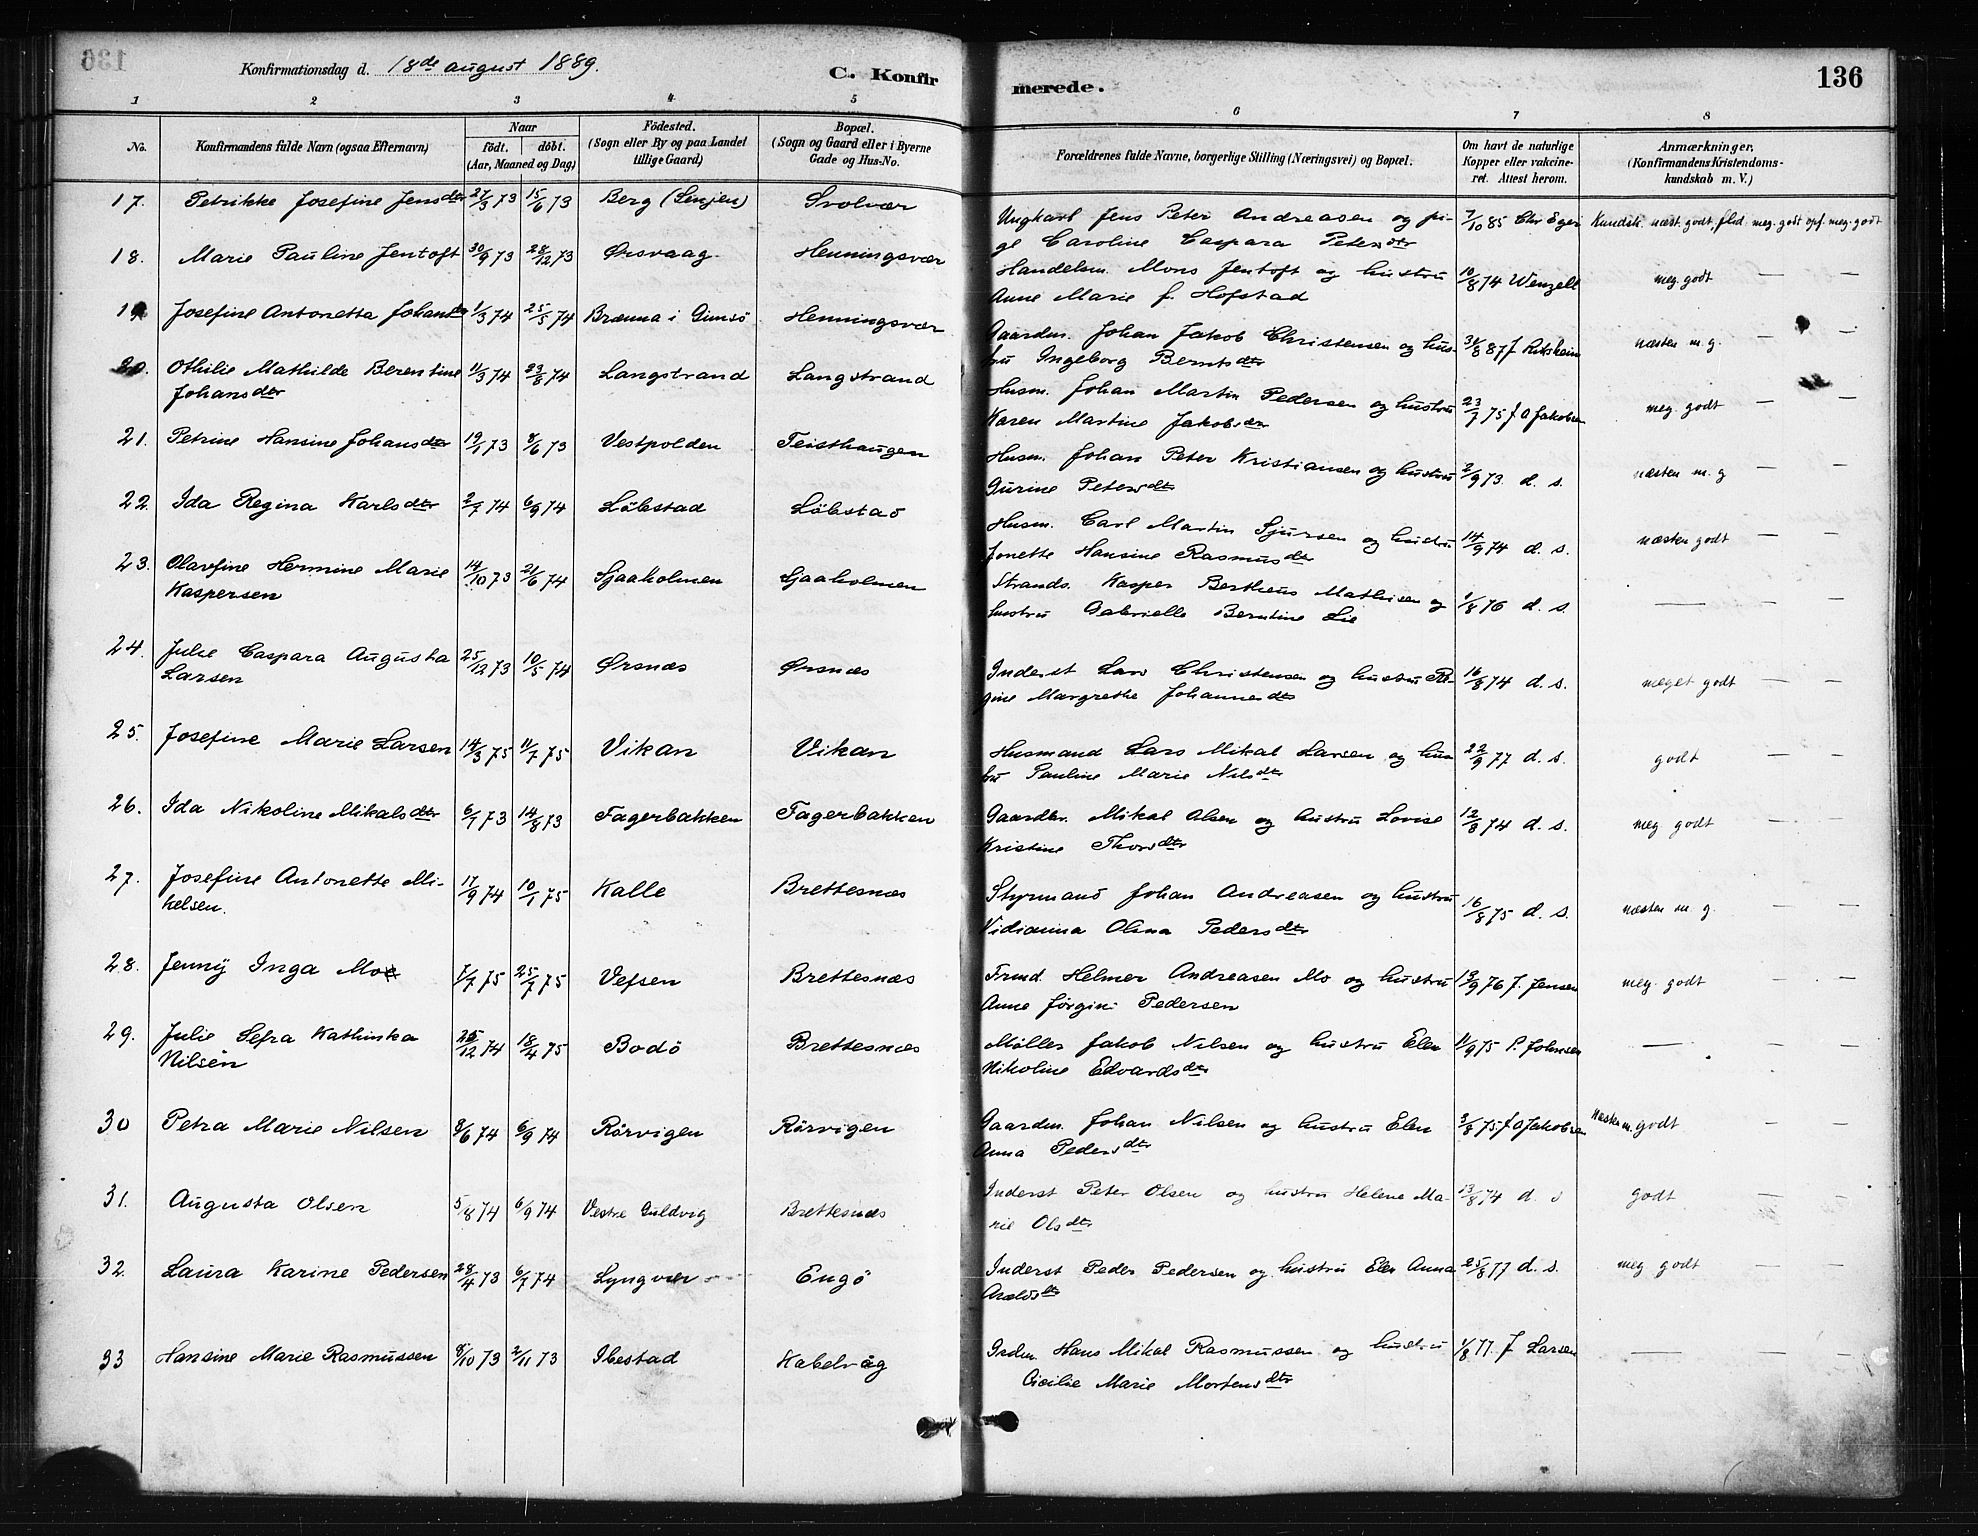 136
Konfirmationsdag d. 18de august 1889.
C. Konfirmerede.
136
1 2 3 4 5 6 7 8
No.
Konfirmandens fulde Navn (ogsaa Efternavn)
Naar
født. døbt.
(Aar, Maaned og Dag)
Fødested.
(Sogn eller By og paa Landet
tillige Gaard)
Bopæl.
(Sogn og Gaard eller i Byerne
Gade og Hus-No.
Forældrenes fulde Navne, borgerlige Stilling (Næringsvei) og Bopæl.
Om havt de naturlige
Kopper eller vakcine-
ret. Attest herom.
Anmærkninger.
(Konfirmandens Kristendoms-
kundskab m. V.)
17. Petrikke Josefine Jensdtr 27/3 73 15/6 73 Berg (Senjen) Svolvær Ungkarl Jens Peter Andreasen og pi- 7/10 85 Chr Eger Kundsk. næst. godt, flid meg. godt opf. meg. godt
ge Caroline Caspara Petersdtr
18. Marie Pauline Jentoft 30/9 73 28/12 73 Ørsvaag Henningsvær Handelsm. Mons Jentoft og hustru 10/8 74 Wenzell meg. godt — —
Anne Marie f. Hofstad
19 Josefine Antonetta Johansdtr 1/3 74 25/5 74 Brenna i Gimsö Henningsvær Gaardm. Johan Jakob Christensen og hus- 8 87 J næsten m. g. — —
tru Ingeborg Berntsdtr
20. Othilie Mathilde Berentine 11/3 74 23/8 74 Langstrand Langstrand Husm. Johan Martin Pedersen og hustru 23/7 75 J O Jakobsen meg. godt — —
Johansdtr Karen Martine Jakobsdtr
21. Petrine Hansine Johansdtr 19/1 73 8/6 73 Vestpolden Teisthaugen Husm. Johan Peter Kristiansen og hustru 2/9 73. d. s. næsten m. g — —
Gurine Petersdtr
22. Ida Regina Karlsdtr 2/7 74 6/9 74 Löbstad Löbstad Husm. Carl Martin Sjursen og hustru 14/9 74 d. s. næsten godt — —
Jonette Hansine Rasmusdtr
23. Olavfine Hermine Marie 14/10 73 21/6 74 Sjaaholmen Sjaaholmen Strands. Kasper Bertheus Mathisen og 1/8 76 d. s. — — —
Kaspersen hustru Gabrielle Berntine Lie
24. Julie Caspara Augusta 25/12 73 10/5 74 Ørsnæs Ørsnæs Inderst Lars Christensen og hustru Re- 16/8 74 d. s. meget godt — —
Larsen gine Margrethe Johannesdtr
25. Josefine Marie Larsen 14/3 75 11/7 75 Vikan Vikan Husmand Lars Mikal Larsen og hus- 22/9 77 d. s. godt — —
tru Pauline Marie Nilsdtr
26. Ida Nikoline Mikalsdtr 6/7 73 14/8 73 Fagerbakken Fagerbakken Gaardbr. Mikal Olsen og hustru Lovise 12/8 74 d. s. meg godt — —
Kristine Thorsdtr
27. Josefine Antonette Mi- 17/9 74 10/1 75 Kalle Brettesnæs Styrmand Johan Andreasen og hustru 16/8 75 d. s. næsten m. g. — —
kelsen. Vidianna Olina Pedersdtr
28. Jenny Inga Mo 7/7 75 25/7 75 Vefsen Brettesnæs Helmer Andreasen Mo og hustru 19/9 76 J. Jensen meg. godt — —
Anne Jørgine Pedersen
29. Julie Sefra Kathinka 25/12 74 18/4 75 Bodö Brettesnæs Møller Jakob Nilsen og hustru Elen 11/9 75 P. Johnsen — — —
Nilsen Nikoline Edvardsdtr
30 Petra Marie Nilsen 9/6 74 6/9 74 Rörvigen Rörvigen Gaardm. Johan Nilsen og hustru Elen 3/8 75 J O Jakobsen Næsten m. godt — —
Anna Pedersdtr
31. Augusta Olsen 5/8 74 6/9 74 Vestre Guldvig Brettesnæs Inderst Peter Olsen og hustru Helene Ma- 13/8 74 d. s godt — —
rie Olsdtr
32. Laura Karine Pedersen 28/4 73 6/7 74 Lyngvær Engö Inderst Peder Pedersen og hustru Elen Anna 25/8 77 d. s. meg godt — —
Araldsdtr
33 Hansine Marie Rasmussen 8/10 73 2/11 73 Ibestad Kabelvåg Inder. Hans Mikal Rasmussen og hustru 1/8 77. J Larsen — — —
Cicilie Marie Mortensdtr